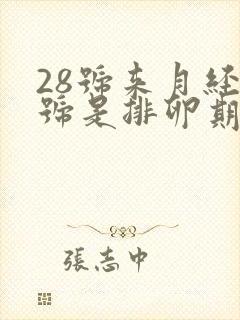 28號来月経
號是排卵期
張志中